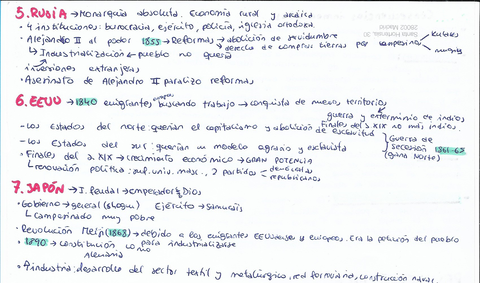 5. RUSIA → Monarquía absoluta. Economía rural y arcaica
· 4 instituciones: burocracia, ejército, policía, iglesia ortodoxa.
· Alejandro II al poder 1855 → Reformas → abolición de servidumbre
↳ derecho de comprar tierras por campesinos kulaks
↳ Industrialización ← pueblo no quería
inversiones extranjeras
· Asesinato de Alejandro II paralizo reformas
6. EEUU → 1840 emigrantes buscando trabajo → conquista de nuevos territorios
guerra y exterminio de indios
Finales del s XIX no más indios.
- Los Estados del norte querían el capitalismo y abolición de esclavitud
- Los Estados del sur: querían un modelo agrario y esclavista
Guerra de secesión 1861-65 (gana Norte)
· Finales del s. XIX → crecimiento económico → GRAN POTENCIA
↳ renovación política: suf. univ. masc., 2 partidos demócratas
republicanos
7. JAPÓN → I. feudal → emperador Dios
· Gobierno → general (shogun) Ejército → samurais
↳ Campesinado muy pobre
· Revolución Meiji (1868) → debido a los emigrantes EEUUenses y europeos. Era la petición del pueblo
para industrializarse
· 1890 → constitución como alemania
· Industria: desarrollo del sector textil y metalúrgico, red ferroviaria, construcción naval.